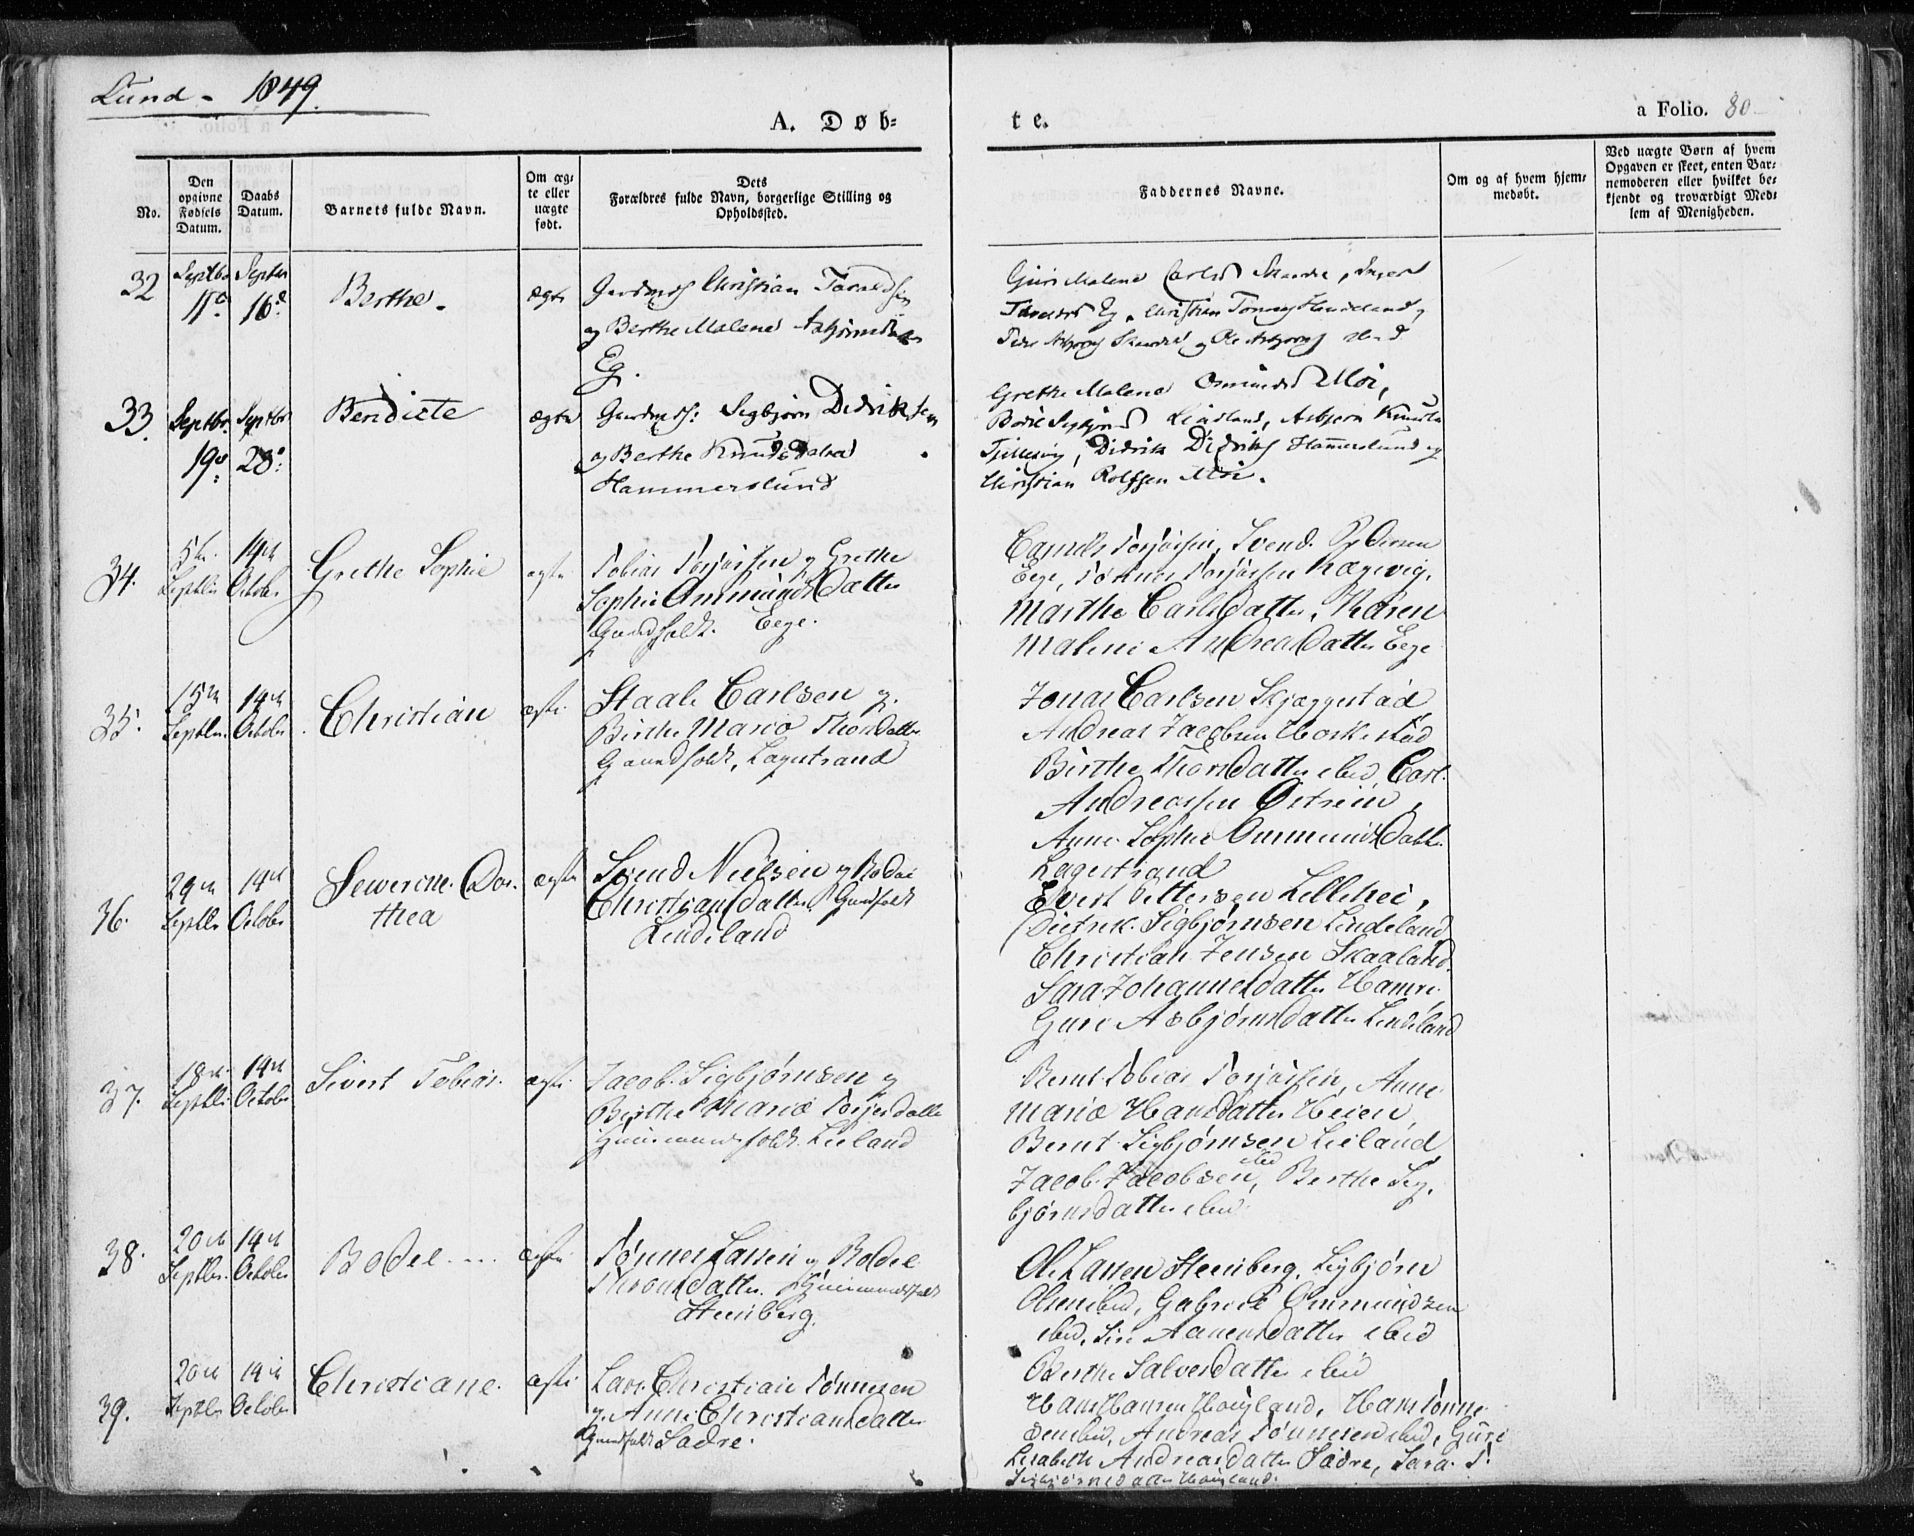 Lund - 1849.
A. Døb-
te.
a Folio. 80
No.
Den opgivne Fødsels Datum.
Daabs Datum.
Barnets fulde Navn.
Om ægte eller uægte født.
Dets
Forældres fulde Navn, borgerlige Stilling og
Opholdssted.
Faddernes Navne.
Om og af hvem hjem-
medøbt.
Ved uægte Børn af hvem
Opgaven er skeet, enten Bar-
nemoderen eller hvilket be-
kjendt og troværdigt Med-
lem af Menigheden.
32
Septbr
11
Septbr
16
Berthe
ægte
Gaardmd Christian
og Berthe Malene
Eg.
Guri Malene Carlsd
Eg, Christian
og Ole
33.
Septbr.
19
Septbr
28
Bendicte
ægte
Gaardmd: Segbjørn Didriksen
og Berthe Knudsdatter
Hammerslund
Grethe Malene Osmundsd Moi,
Bodil Lindland, Asbjørn
Didrik Didriks Hammerslund og
Christian Rolfsen Moi.
34.
5te
Septbr
14de
October
Grethe Sophie
ægte
Tobias Torjussen og Grethe
Sophie Ommunds Datter
Gaardfolk. Eege.
Torjussen, Svend Pedersen
Eege, Tønnes Torjussen
Marthe Carlsdatter, Karen
Malene Andreasdatter Eege
35.
15de
Septbr.
14de
October
Christian
ægte
Staale Carlsen og
Birthe Maria Thorsdatter
Gaardfolk, Lagestrand
Jonas Carlsen Skjæggestad
Andreas Jacobsen Hoskestad
Birthe Thorsdatter ibid, Carl
Andreassen Østreim,
Anne Sophie Ommundsdatter
Lagestrand
36.
29de
Septbr
14de
October
Sewerine Dor-
thea
ægte
Svend Nielsen og Bodil
Christiansdatter, Gaardfolk
Lindeland
Evert Pettersen Lillehei,
Dietrik Sigbjørnsen Lindeland
Christian Jensen Skaaland,
Sara Johannesdatter Hamre
Guri Asbjørnsdatter Lindeland
37.
18de
Septbr
14de
October
Sivert Tobias.
ægte
Jacob Sigbjørnsen og
Birthe Maria Torjesdatter
Huusmandsfolk Lieland
Bernt Tobias Torjussen, Anne
Maria Hansdatter Heien,
Bernt Sigbjørnsen Lieland
Jacob Jacobsen ibid, Berthe Sig-
bjørnsdatter ibid.
38.
20de
Septbr.
14de
October
Bodel
ægte
Tønnes Lassen og Bodel
Thronsdatter. Huusmandsfolk
Steinberg.
Ole Lassen Steinberg, Sigbjørn
Olsen ibid, Gabriel Ommundsen
ibid, Siri Aanensdatter ibid
Berthe Salvesdatter ibid
39.
20de
Septbr
14de
October
Christiane.
ægte
Lars Christian Tønnesen
og Anne Christiansdatter
Gaardfolk Sadre.
Hans Hansen Hougland, Hans Tønne-
sen ibid, Andreas Tønnesen ibid, Guri
Lisabeth Andreasdatter Sadre, Sara S.
Sigbjørnsdatter Hougland.